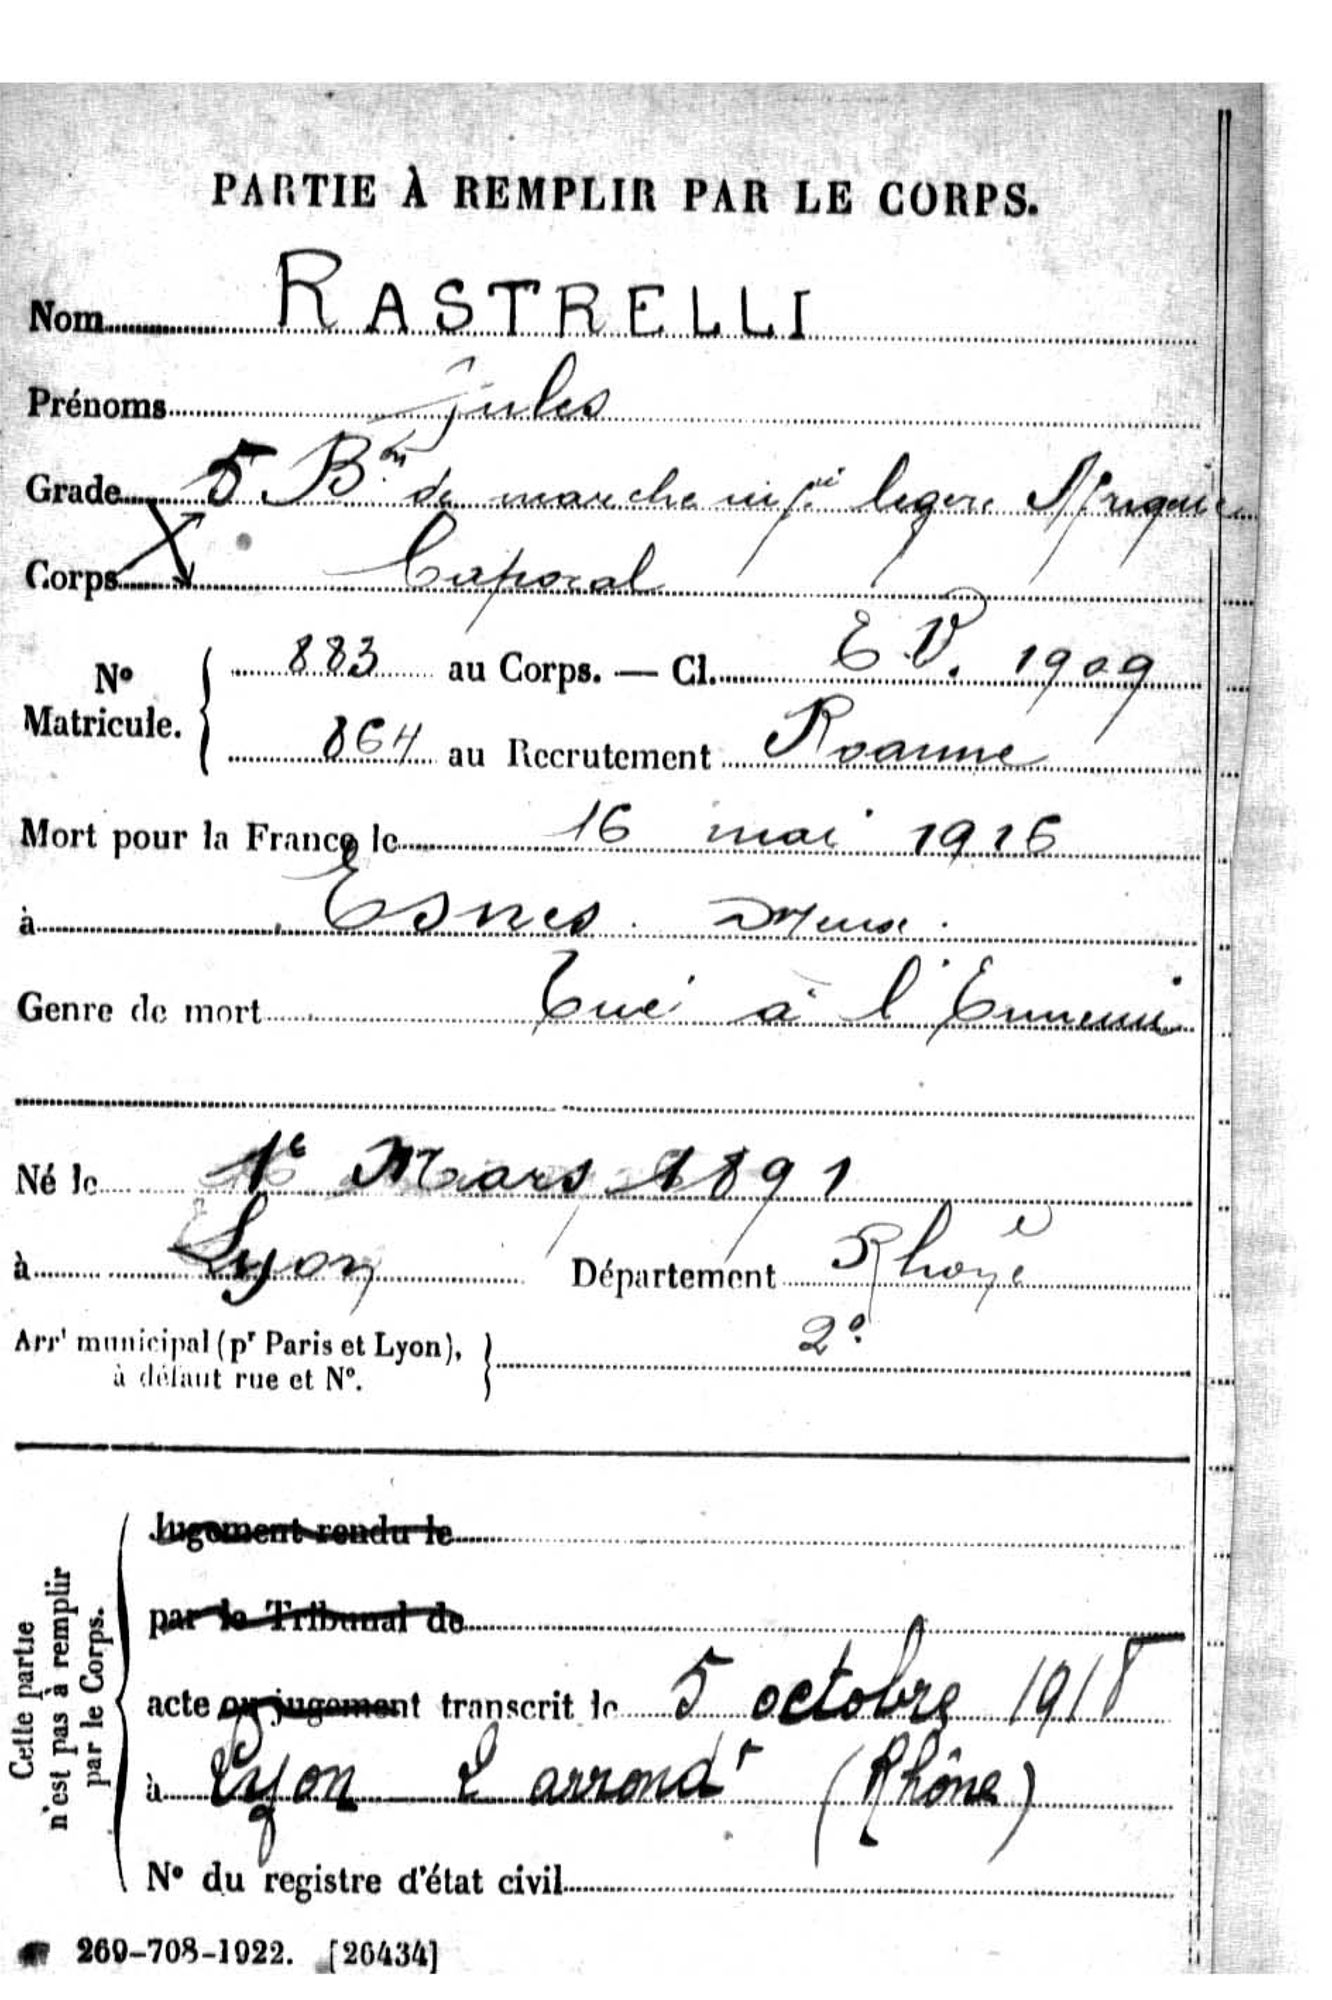 PARTIE À REMPLIR PAR LE CORPS.
Nom RASTRELLI
Prénoms Jules
Grade 5 Bon de marche infie légère Afrique
Corps Caporal
No Matricule. 883 au Corps. — Cl. E V. 1909
864 au Recrutement Roanne
Mort pour la France le 16 mai 1916
à Esnes Meuse.
Genre de mort Tué à l'Ennemi
Né le 1e Mars 1891
à Lyon Département Rhône
Arrt municipal (pr Paris et Lyon), 2e
à défaut rue et No.
Cette partie n'est pas à remplir par le Corps.
Jugement rendu le
par le Tribunal de
acte ou jugement transcrit le 5 octobre 1918
à Lyon 2 arrondt (Rhône)
No du registre d'état civil
269-708-1922. [26434]